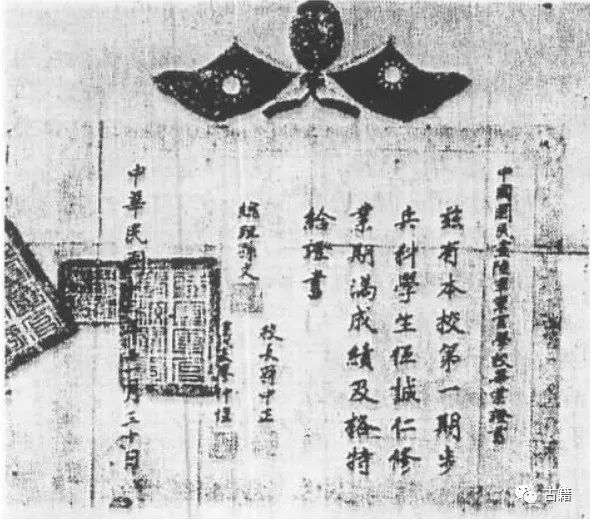 中國國民黨陸軍軍官學校畢業證書
茲有本校第一期步
兵科學生伍誠仁修
業期滿成績及格特
給證書
總理孫文
校長蔣中正
廖仲愷
中華民國年十一月三十日
古籍